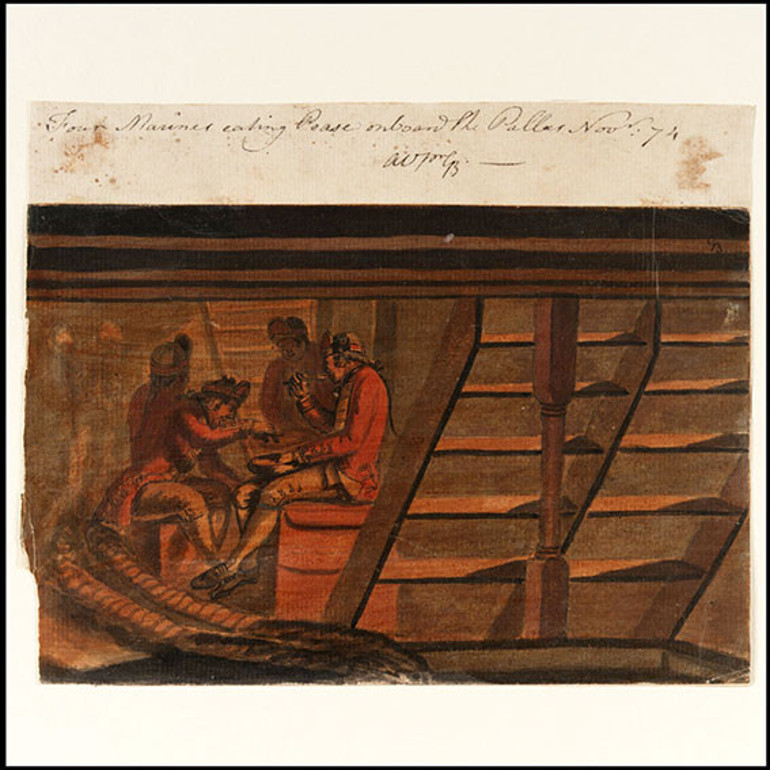 Four Marines eating Pease onboard the Pallas Novr. 74
avprGB —
GB